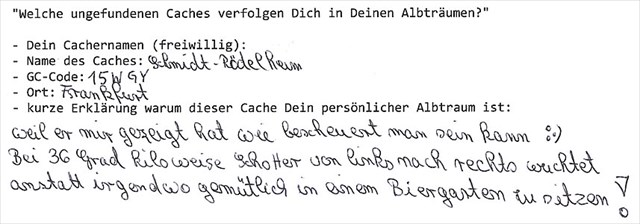 "Welche ungefundenen Caches verfolgen Dich in Deinen Albträumen?"
- Dein Cachernamen (freiwillig):
- Name des Caches: Schmidt-Rödelheim
- GC-Code: 15WGY
- Ort: Frankfurt
- kurze Erklärung warum dieser Cache Dein persönlicher Albtraum ist:
weil er mir gezeigt hat wie bescheuert man sein kann :)
Bei 36 Grad kiloweise Schotter von links nach rechts wuchtet
anstatt irgendwo gemütlich in einem Biergarten zu sitzen!